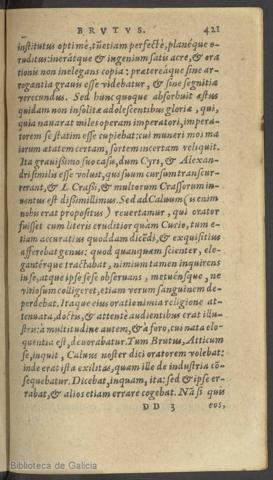 BRVTVS. 421
institutus optimè, tũ etiam perfectè, planéque e-
ruditus: inerátque & ingenium satis acre, & ora
tionis non inelegans copia: prætereáque sine ar-
rogantia grauis esse videbatur, & sine segnitia
verecundus. Sed hunc quoque absorbuit æstus
quidam non insolitæ adolescentibus gloriæ, qui,
quia nauarat miles operam imperatori, impera-
torem se statim esse cupiebat: cui muneri mos ma
iorum ætatem certam, sortem incertam reliquit.
Ita grauissimo suo casu, dum Cyri, & Alexan-
dri similis esse voluit, qui suum cursum transcur-
rerant, & L. Crassi, & multorum Crassorum in-
uentus est dissimillimus. Sed ad Caluum (is enim
nobis erat propositus) reuertamur, qui orator
fuisset cum literis eruditior quàm Curio, tum e-
tiam accuratius quoddam dicẽdi, & exquisitius
afferebat genus: quod quanquam scienter, ele-
gantérque tractabat, nimium tamen inquirens
in se, atque ipse sese obseruans, metuénsque, ne
vitiosum colligeret, etiam verum sanguinem de-
perdebat. Itaque eius oratio nimia religione at-
tenuata, doctis, & attentè audientibus erat illu-
stris: à multitudine autem, & à foro, cui nata elo-
quentia est, deuorabatur. Tum Brutus, Atticum
se, inquit, Caluus noster dici oratorem volebat:
inde erat ista exilitas, quam ille de industria cõ-
sequebatur. Dicebat, inquam, ita: sed & ipse er-
rabat, & alios etiam errare cogebat. Nã si quis
DD 3 eos,
Biblioteca de Galicia